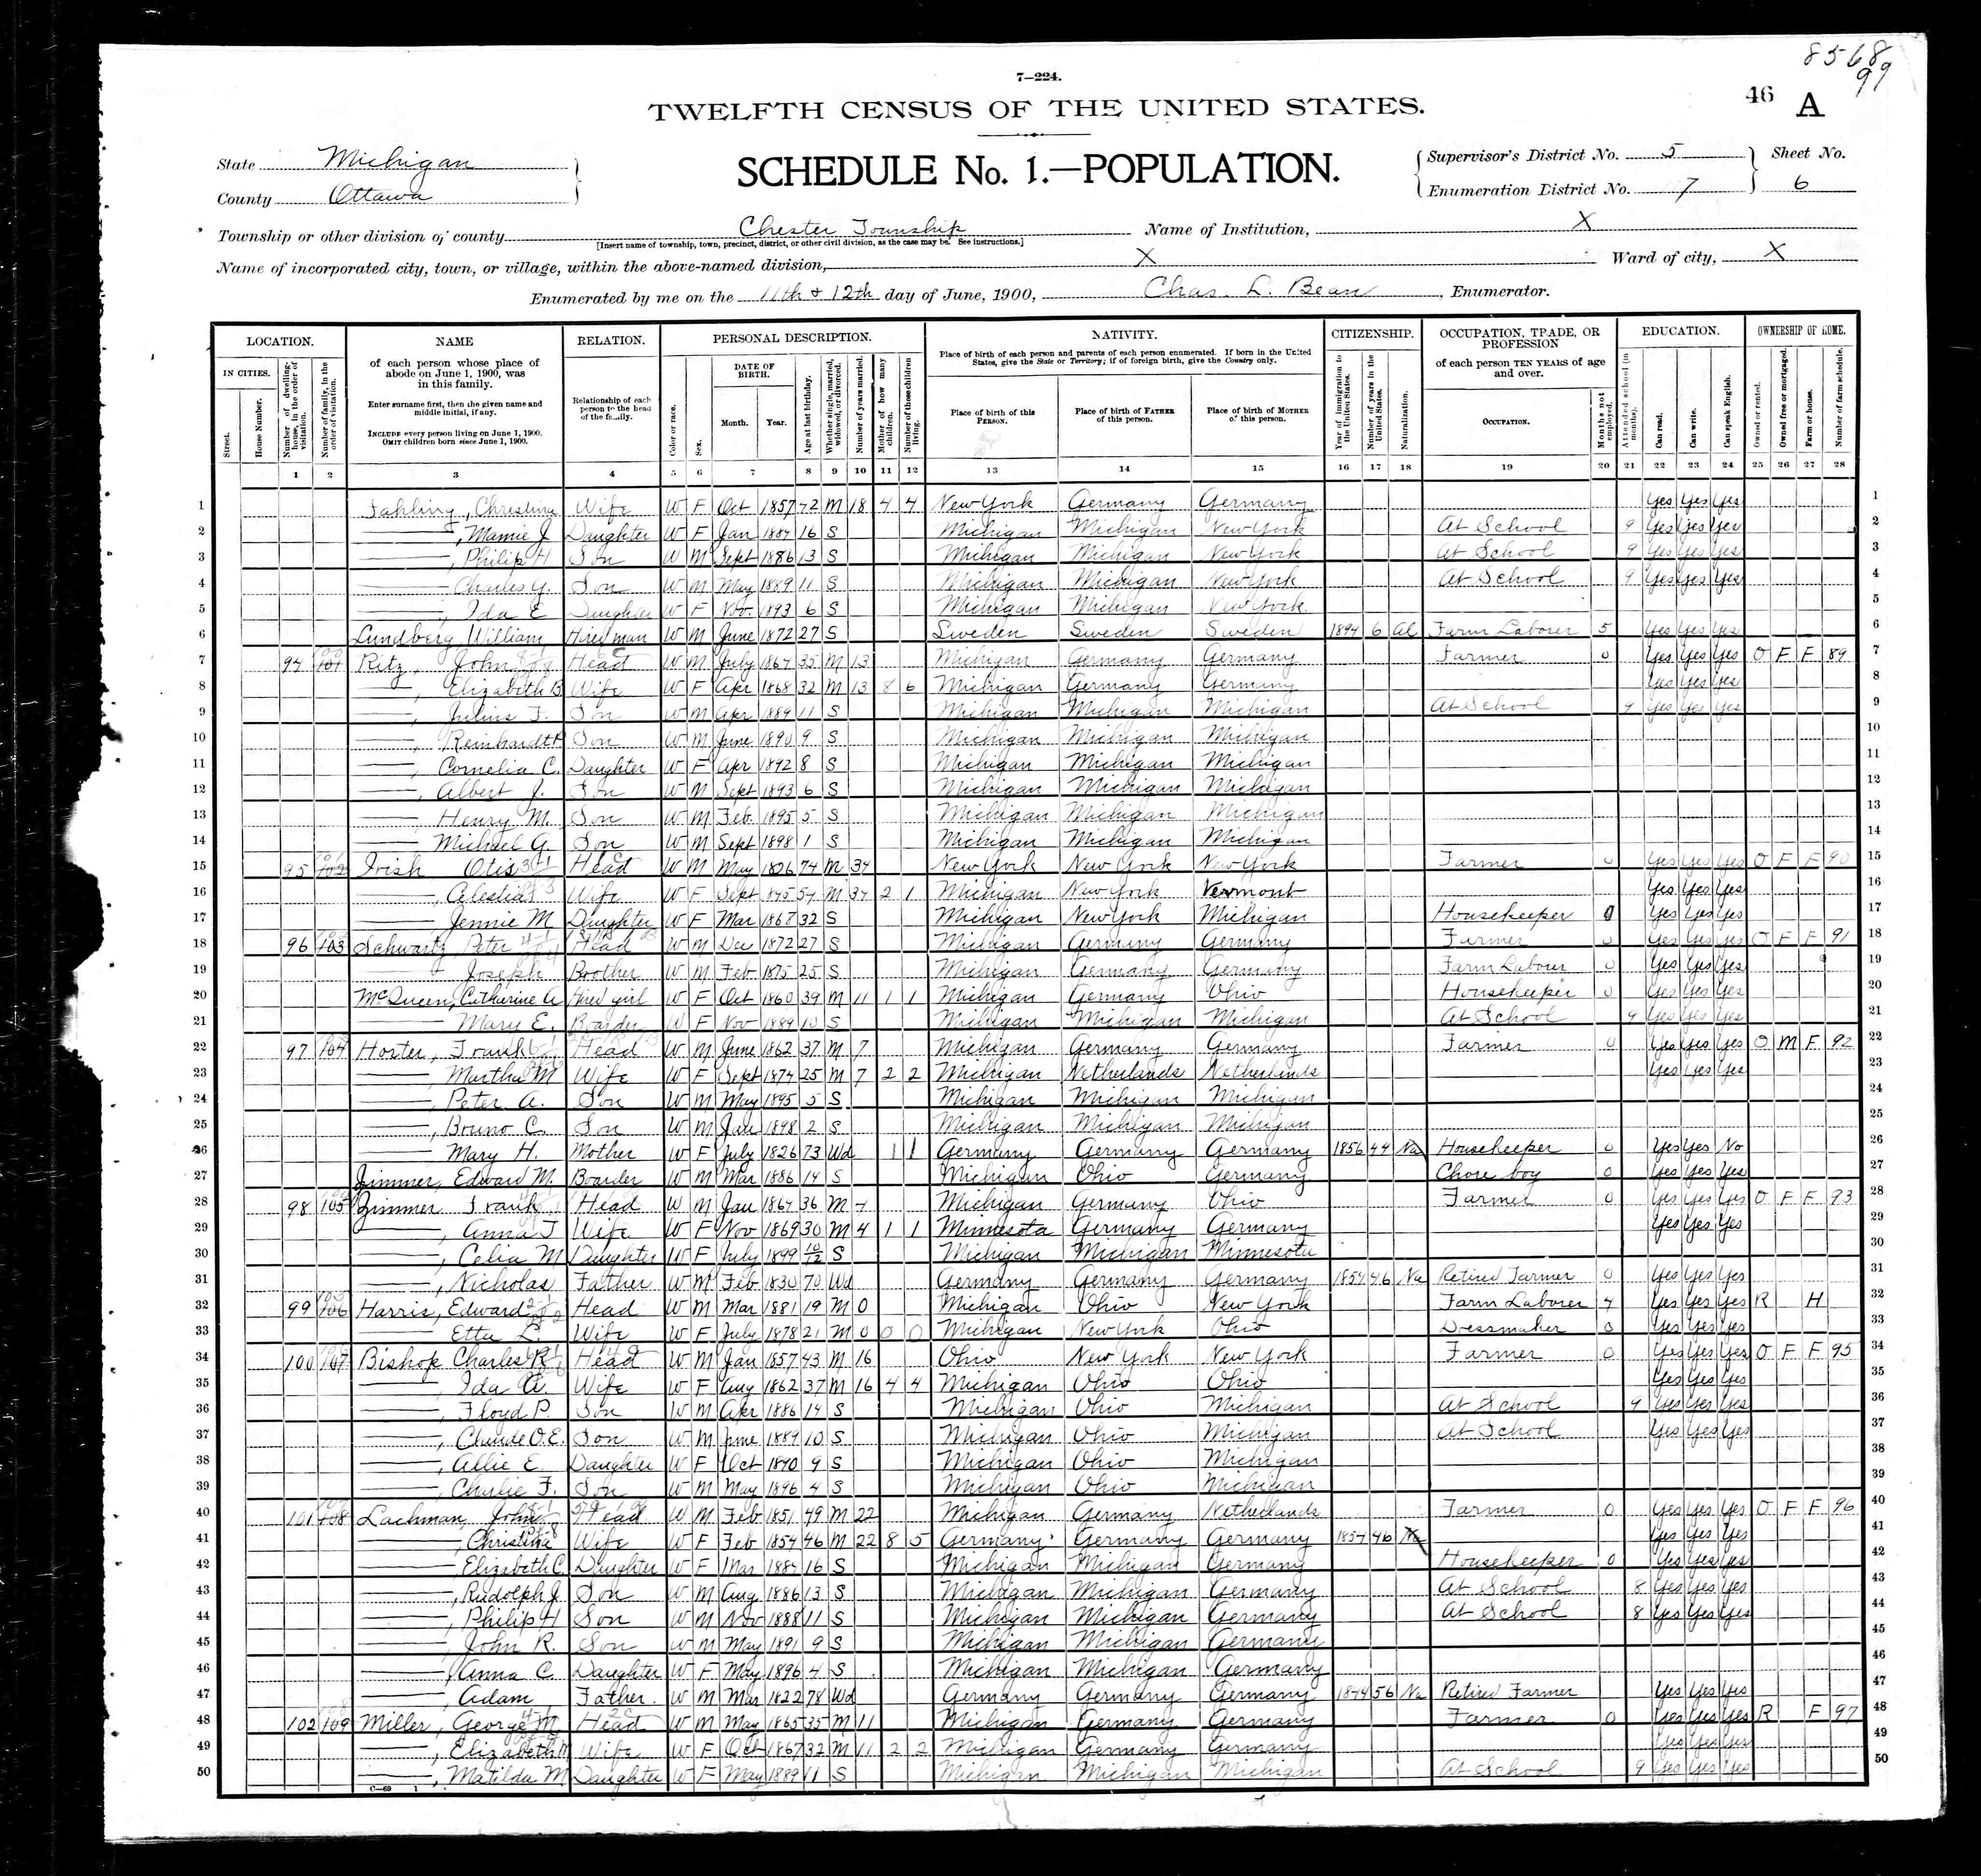 8568
99
7—224.
46 A
TWELFTH CENSUS OF THE UNITED STATES.
State Michigan
County Ottawa
SCHEDULE No. 1.—POPULATION.
Supervisor's District No. 5 Sheet No.
Enumeration District No. 7 6
Township or other division of county Chester Township Name of Institution, X
[Insert name of township, town, precinct, district, or other civil division, as the case may be. See instructions.]
Name of incorporated city, town, or village, within the above-named division, X Ward of city, X
Enumerated by me on the 11th & 12th day of June, 1900, Chas. L. Bean, Enumerator.
LOCATION. NAME RELATION. PERSONAL DESCRIPTION. NATIVITY. CITIZENSHIP. OCCUPATION, TRADE, OR PROFESSION EDUCATION. OWNERSHIP OF HOME.
IN CITIES. Street. House Number. Number of dwelling-house, in the order of visitation. Number of family, in the order of visitation.
of each person whose place of abode on June 1, 1900, was in this family.
Enter surname first, then the given name and middle initial, if any.
INCLUDE every person living on June 1, 1900. OMIT children born since June 1, 1900.
Relationship of each person to the head of the family.
Color or race. Sex. DATE OF BIRTH. Month. Year. Age at last birthday. Whether single, married, widowed, or divorced. Number of years married. Mother of how many children. Number of these children living.
Place of birth of each person and parents of each person enumerated. If born in the United States, give the State or Territory; if of foreign birth, give the Country only.
Place of birth of this PERSON. Place of birth of FATHER of this person. Place of birth of MOTHER of this person.
Year of immigration to the United States. Number of years in the United States. Naturalization.
of each person TEN YEARS of age and over.
OCCUPATION. Months not employed. Attended school (in months). Can read. Can write. Can speak English. Owned or rented. Owned free or mortgaged. Farm or house. Number of farm schedule.
1 2 3 4 5 6 7 8 9 10 11 12 13 14 15 16 17 18 19 20 21 22 23 24 25 26 27 28
1 Fahling, Christina Wife W F Oct 1857 42 M 18 4 4 New York Germany Germany Yes Yes Yes 1
2 , Mamie J Daughter W F Jan 1884 16 S Michigan Michigan New York At School 9 Yes Yes Yes 2
3 , Philip H Son W M Sept 1886 13 S Michigan Michigan New York At School 9 Yes Yes Yes 3
4 Charles G. Son W M May 1889 11 S Michigan Michigan New York At School 9 Yes Yes Yes 4
5 , Ida E Daughter W F Nov. 1893 6 S Michigan Michigan New York 5
6 Lundberg William Hired man W M June 1872 27 S Sweden Sweden Sweden 1894 6 Al Farm Laborer 5 Yes Yes Yes 6
7 94 101 Ritz, John Head W M July 1864 35 M 13 Michigan Germany Germany Farmer 0 Yes Yes Yes O F F 89 7
8 , Elizabeth B Wife W F Apr 1868 32 M 13 8 6 Michigan Germany Germany Yes Yes Yes 8
9 , Julius F. Son W M Apr 1889 11 S Michigan Michigan Michigan At School 9 Yes Yes Yes 9
10 , Reinhardt P Son W M June 1890 9 S Michigan Michigan Michigan 10
11 , Cornelia C. Daughter W F Apr 1892 8 S Michigan Michigan Michigan 11
12 , Albert J. Son W M Sept 1893 6 S Michigan Michigan Michigan 12
13 Henry M. Son W M Feb. 1895 5 S Michigan Michigan Michigan 13
14 Michael G. Son W M Sept 1898 1 S Michigan Michigan Michigan 14
15 95 102 Irish Otis Head W M May 1826 74 M 34 New York New York New York Farmer 0 Yes Yes Yes O F F 90 15
16 , Celestia Wife W F Sept 1845 54 M 34 2 1 Michigan New York Vermont Yes Yes Yes 16
17 Jennie M Daughter W F Mar 1867 32 S Michigan New York Michigan Housekeeper 0 Yes Yes Yes 17
18 96 103 Schwartz Peter Head W M Dec 1872 27 S Michigan Germany Germany Farmer 0 Yes Yes Yes O F F 91 18
19 Joseph Brother W M Feb 1875 25 S Michigan Germany Germany Farm Laborer 0 Yes Yes Yes 19
20 McQueen, Catherine A Hired girl W F Oct 1860 39 M 11 1 1 Michigan Germany Ohio Housekeeper 0 Yes Yes Yes 20
21 Mary E. Boarder W F Nov 1889 10 S Michigan Michigan Michigan At School 9 Yes Yes Yes 21
22 97 104 Hoster, Frank Head W M June 1862 37 M 7 Michigan Germany Germany Farmer 0 Yes Yes Yes O M F 92 22
23 Martha M Wife W F Sept 1874 25 M 7 2 2 Michigan Netherlands Netherlands Yes Yes Yes 23
24 , Peter A. Son W M May 1895 5 S Michigan Michigan Michigan 24
25 , Bruno C. Son W M Jan 1898 2 S Michigan Michigan Michigan 25
26 Mary H. Mother W F July 1826 73 Wd 1 1 Germany Germany Germany 1856 44 Na Housekeeper 0 Yes Yes No 26
27 Zimmer, Edward M. Boarder W M Mar 1886 14 S Michigan Ohio Germany Chore boy 0 Yes Yes Yes 27
28 98 105 Zimmer Frank Head W M Jan 1864 36 M 4 Michigan Germany Ohio Farmer 0 Yes Yes Yes O F F 93 28
29 , Anna T Wife W F Nov 1869 30 M 4 1 1 Minnesota Germany Germany Yes Yes Yes 29
30 , Celia M Daughter W F July 1899 10/12 S Michigan Michigan Minnesota 30
31 , Nicholas Father W M Feb 1830 70 Wd Germany Germany Germany 1854 46 Na Retired Farmer 0 Yes Yes Yes 31
32 99 106 Harris, Edward Head W M Mar 1881 19 M 0 Michigan Ohio New York Farm Laborer 4 Yes Yes Yes R H 32
33 Etta L. Wife W F July 1878 21 M 0 0 0 Michigan New York Ohio Dressmaker 0 Yes Yes Yes 33
34 100 107 Bishop Charles R Head W M Jan 1857 43 M 16 Ohio New York New York Farmer 0 Yes Yes Yes O F F 95 34
35 , Ida A. Wife W F Aug 1862 37 M 16 4 4 Michigan Ohio Ohio Yes Yes Yes 35
36 , Floyd P. Son W M Apr 1886 14 S Michigan Ohio Michigan At School 9 Yes Yes Yes 36
37 , Claude O.E. Son W M June 1889 10 S Michigan Ohio Michigan At School Yes Yes Yes 37
38 , Allie E. Daughter W F Oct 1890 9 S Michigan Ohio Michigan 38
39 , Charlie F. Son W M May 1896 4 S Michigan Ohio Michigan 39
40 101 108 Lachman, John Head W M Feb 1851 49 M 22 Michigan Germany Netherlands Farmer 0 Yes Yes Yes O F F 96 40
41 , Christina Wife W F Feb 1854 46 M 22 8 5 Germany Germany Germany 1854 46 Na Yes Yes Yes 41
42 , Elizabeth C. Daughter W F Mar 1884 16 S Michigan Michigan Germany Housekeeper 0 Yes Yes Yes 42
43 , Rudolph J. Son W M Aug 1886 13 S Michigan Michigan Germany At School 8 Yes Yes Yes 43
44 , Philip H Son W M Nov 1888 11 S Michigan Michigan Germany At School 8 Yes Yes Yes 44
45 , John R. Son W M May 1891 9 S Michigan Michigan Germany 45
46 , Anna C. Daughter W F May 1896 4 S Michigan Michigan Germany 46
47 , Adam Father W M Mar 1822 78 Wd Germany Germany Germany 1844 56 Na Retired Farmer Yes Yes Yes 47
48 102 109 Miller, George M Head W M May 1865 35 M 11 Michigan Germany Germany Farmer 0 Yes Yes Yes R F 97 48
49 , Elizabeth M Wife W F Oct 1867 32 M 11 2 2 Michigan Germany Germany Yes Yes Yes 49
50 , Matilda M Daughter W F May 1889 11 S Michigan Michigan Michigan At School 9 Yes Yes Yes 50
C—69 1